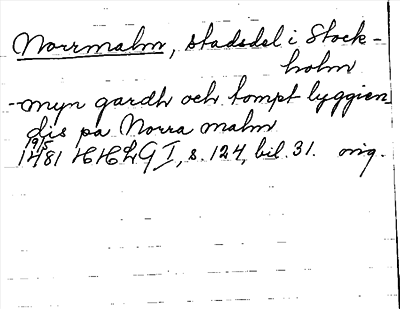 Norrmalm, stadsdel i Stock-
holm
-myn gardh och tompt lyggien
dis pa Norra malm
19/5
1481 HHLG I, s. 124, bil. 31. orig.